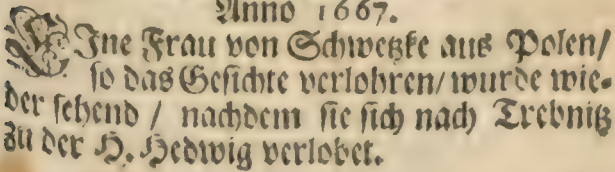 Anno 1667.
EJne Frau von Schwetzke aus Polen/
so das Gesichte verlohren/ wurde wie-
der sehend / nachdem sie sich nach Trebnitz
zu der H. Hedwig verlobet.